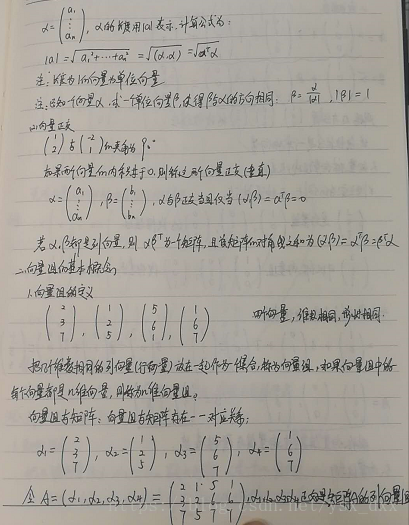 α=(a₁ ⋮ aₙ), α的长度用|α|表示,计算公式为:
|α|=√a₁²+⋯+aₙ² =√(α,α) =√αᵀα
注:长度为1的向量为单位向量
注:已知一个向量α,求一单位向量β,使得β与α的方向相同: β=α/|α|, |β|=1
(2)向量正交
(1 2)与(-2 1)的夹角为90°
如果两个向量的内积等于0,则称这两个向量正交(垂直)
α=(a₁ ⋮ aₙ), β=(b₁ ⋮ bₙ), α与β正交当且仅当(α,β)=αᵀβ=0
若α,β都是列向量,则αβᵀ为一个矩阵,且该矩阵的对角线之和为(α,β)=αᵀβ=βᵀα
二.向量组的基本概念
1.向量组的定义
(2 3 7), (1 2 5), (5 6 1), (1 6 7) 四个向量,维数相同,形状相同
把几个维数相同的列向量(行向量)放在一起作为一个集合,称为向量组,如果向量组中的
每个向量都是n维向量,则称为n维向量组。
向量组与矩阵:向量组与矩阵存在一一对应关系:
α₁=(2 3 7), α₂=(1 2 5), α₃=(5 6 7), α₄=(1 6 7)
令A=(α₁,α₂,α₃,α₄)=